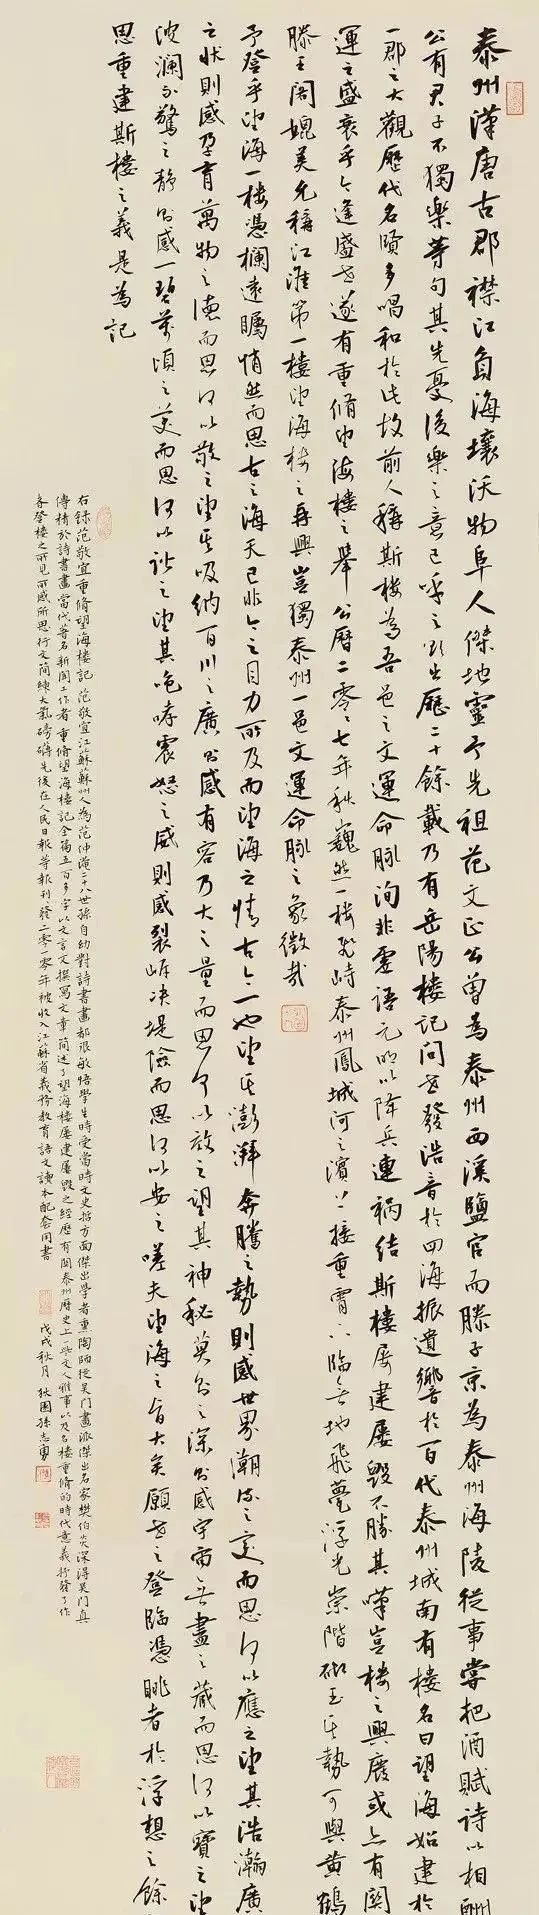 泰州漢唐古郡襟江負海壤沃物阜人傑地靈予先祖范文正公曾爲泰州西溪鹽官而滕子京為泰州海陵從事嘗把酒賦詩以相酬
公有君子不獨樂等句其先憂後樂之意已呼之欲出歷二十餘載乃有岳陽樓記問世發浩音於四海振遺響於百代泰州城南有樓名曰望海始建於
一郡之大觀歷代名賢多唱和於此故前人稱斯樓為吾邑之文運命脉洵非虛語元明以降兵連禍結斯樓屢建屢毀不勝其嘆豈樓之興廢或亦有關
運之盛衰乎今逢盛世遂有重脩望海樓之舉公曆二零零七年秋巍然一樓飛峙泰州鳳城河之濱上接重霄下臨無地飛甍浮光崇階砌玉其勢可與黃鶴
滕王閣媲美允稱江淮第一樓望海樓之再興豈獨泰州一邑文運命脉之象徵哉
予登乎望海一樓憑欄遠矚悄然而思古之海天已非今之目力所及而望海之情古今一也望其澎湃奔騰之勢則感世界潮流之變而思何以應之望其浩瀚廣
之狀則感孕育萬物之德而思何以敬之望其吸納百川之廣則感有容乃大之量而思何以效之望其神秘莫測之深則感宇宙無盡之藏而思何以寶之望
波瀾不驚之靜則感一碧萬頃之美而思何以諧之望其咆哮震怒之威則感裂岸决堤險而思何以安之嗟夫望海之旨大矣願世之登臨憑眺者於浮想之餘
思重建斯樓之義是為記
右錄范敬宜重脩望海樓記 范敬宜江蘇蘇州人為范仲淹二十八世孫自幼對詩書畫都很敏悟學生時受當時文史哲方面傑出學者熏陶師從吳門畫派傑出名家樊伯炎深得吳門真
傳精於詩書畫當代著名新聞工作者 重脩望海樓記全篇五百多字以文言文撰寫文章簡述了望海樓屢建屢毀之經歷有關泰州歷史上一些文人雅事以及名樓重脩的時代意義抒發了作
者登樓之所見所感所思行文簡練大氣磅礴先後在人民日報等報刊發二零一零年被收入江蘇省義務教育語文讀本配套用書
戊戌秋月 秋圃孫志勇